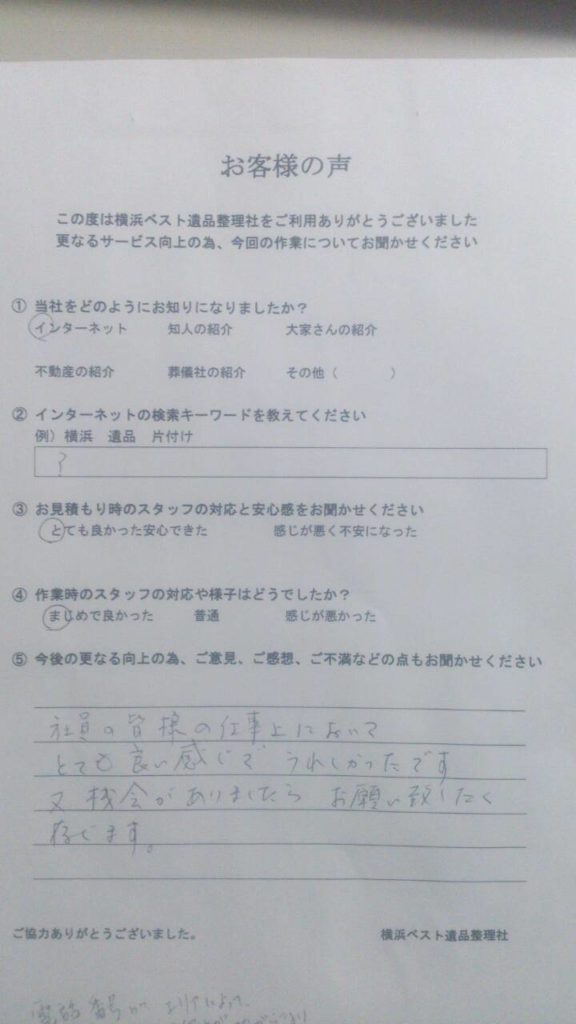 お客様の声
この度は横浜ベスト遺品整理社をご利用ありがとうございました
更なるサービス向上の為、今回の作業についてお聞かせください
① 当社をどのようにお知りになりましたか？
インターネット 知人の紹介 大家さんの紹介
不動産の紹介 葬儀社の紹介 その他（ ）
② インターネットの検索キーワードを教えてください
例）横浜 遺品 片付け
?
③ お見積もり時のスタッフの対応と安心感をお聞かせください
とても良かった安心できた 感じが悪く不安になった
④ 作業時のスタッフの対応や様子はどうでしたか？
まじめで良かった 普通 感じが悪かった
⑤ 今後の更なる向上の為、ご意見、ご感想、ご不満などの点もお聞かせください
社員の皆様の仕事上において
とても良い感じで うれしかったです
又機会がありましたら お願い致したく
存じます。
ご協力ありがとうございました。 横浜ベスト遺品整理社
電話番号が